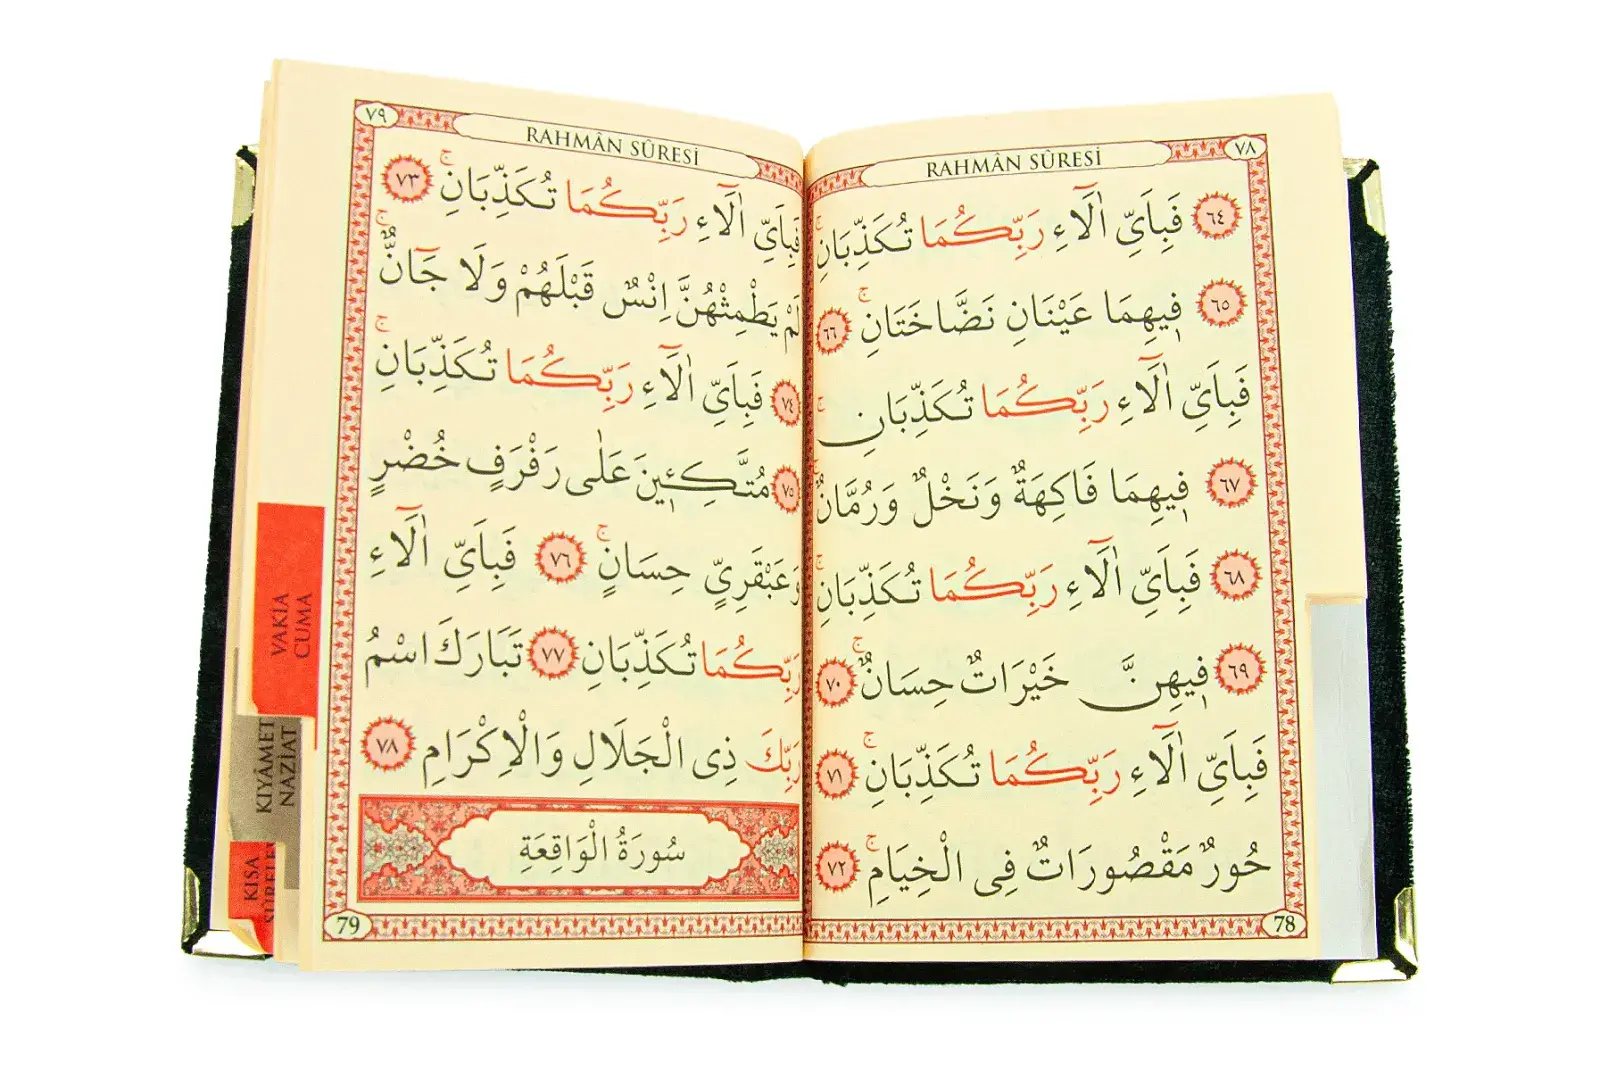 ٧٨
RAHMÂN SÛRESİ
٦٤ فَبِاَيِّ اٰلَٓاءِ رَبِّكُمَا تُكَذِّبَانِۚ
٦٥ ف۪يهِمَا عَيْنَانِ نَضَّاخَتَانِۚ ٦٦
فَبِاَيِّ اٰلَٓاءِ رَبِّكُمَا تُكَذِّبَانِۚ
٦٧ ف۪يهِمَا فَاكِهَةٌ وَنَخْلٌ وَرُمَّانٌۚ
٦٨ فَبِاَيِّ اٰلَٓاءِ رَبِّكُمَا تُكَذِّبَانِۚ
٦٩ ف۪يهِنَّ خَيْرَاتٌ حِسَانٌۚ ٧٠
فَبِاَيِّ اٰلَٓاءِ رَبِّكُمَا تُكَذِّبَانِۚ ٧١
حُورٌ مَقْصُورَاتٌ فِي الْخِيَامِۚ ٧٢
78
٧٩
RAHMÂN SÛRESİ
فَبِاَيِّ اٰلَٓاءِ رَبِّكُمَا تُكَذِّبَانِۚ ٧٣
لَمْ يَطْمِثْهُنَّ اِنْسٌ قَبْلَهُمْ وَلَا جَٓانٌّۚ
٧٤ فَبِاَيِّ اٰلَٓاءِ رَبِّكُمَا تُكَذِّبَانِۚ
٧٥ مُتَّكِـ۪ٔينَ عَلٰى رَفْرَفٍ خُضْرٍ
وَعَبْقَرِيٍّ حِسَانٍۚ ٧٦ فَبِاَيِّ اٰلَٓاءِ
رَبِّكُمَا تُكَذِّبَانِ ٧٧ تَبَارَكَ اسْمُ
رَبِّكَ ذِي الْجَلَالِ وَالْاِكْرَامِ ٧٨
سُورَةُ الْوَاقِعَةِ
79
VAKİA
CUMA
KIYÂMET
NAZİAT
KISA